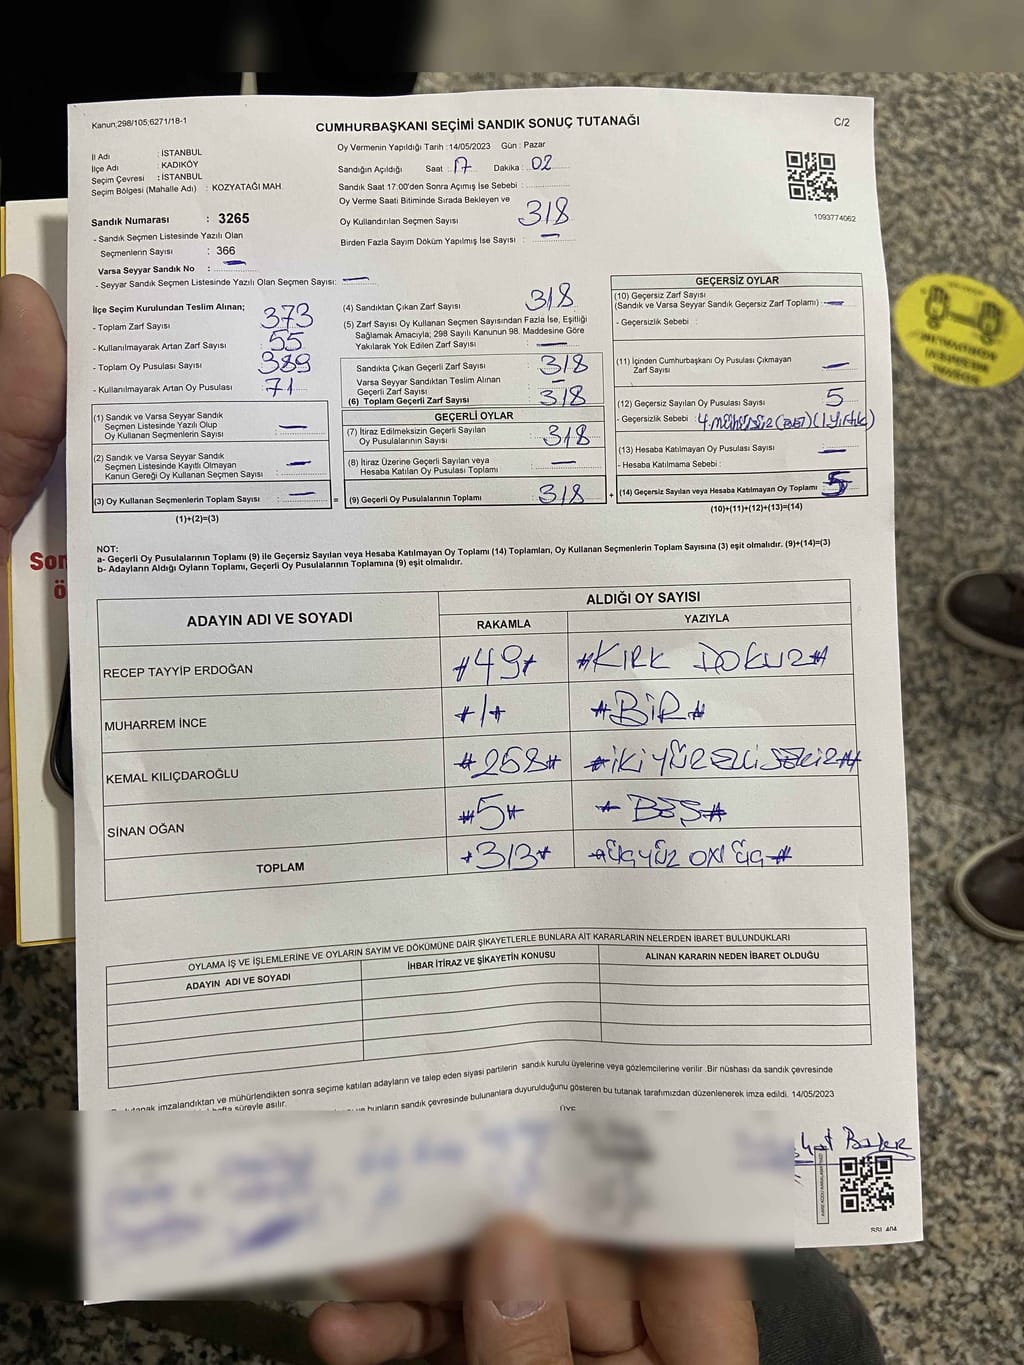 Kanun;298/105;6271/18-1
CUMHURBAŞKANI SEÇİMİ SANDIK SONUÇ TUTANAĞI
C/2
İl Adı : İSTANBUL
İlçe Adı : KADIKÖY
Seçim Çevresi : İSTANBUL
Seçim Bölgesi (Mahalle Adı) : KOZYATAĞI MAH.
Sandık Numarası : 3265
- Sandık Seçmen Listesinde Yazılı Olan
Seçmenlerin Sayısı : 366
Varsa Seyyar Sandık No : —
- Seyyar Sandık Seçmen Listesinde Yazılı Olan Seçmen Sayısı: —
Oy Vermenin Yapıldığı Tarih : 14/05/2023 Gün : Pazar
Sandığın Açıldığı Saat 17 Dakika 02
Sandık Saat 17:00'den Sonra Açımış İse Sebebi :
Oy Verme Saati Bitiminde Sırada Bekleyen ve
Oy Kullandırılan Seçmen Sayısı 318
Birden Fazla Sayım Döküm Yapılmış İse Sayısı : —
1093774062
İlçe Seçim Kurulundan Teslim Alınan;
- Toplam Zarf Sayısı 373
- Kullanılmayarak Artan Zarf Sayısı 55
- Toplam Oy Pusulası Sayısı 389
- Kullanılmayarak Artan Oy Pusulası 71
(1) Sandık ve Varsa Seyyar Sandık
Seçmen Listesinde Yazılı Olup
Oy Kullanan Seçmenlerin Sayısı : —
(2) Sandık ve Varsa Seyyar Sandık
Seçmen Listesinde Kayıtlı Olmayan
Kanun Gereği Oy Kullanan Seçmen Sayısı : —
(3) Oy Kullanan Seçmenlerin Toplam Sayısı : —
(1)+(2)=(3)
(4) Sandıktan Çıkan Zarf Sayısı 318
(5) Zarf Sayısı Oy Kullanan Seçmen Sayısından Fazla İse, Eşitliği
Sağlamak Amacıyla; 298 Sayılı Kanunun 98. Maddesine Göre
Yakılarak Yok Edilen Zarf Sayısı : —
Sandıkta Çıkan Geçerli Zarf Sayısı 318
Varsa Seyyar Sandıktan Teslim Alınan
Geçerli Zarf Sayısı : —
(6) Toplam Geçerli Zarf Sayısı : 318
GEÇERLİ OYLAR
(7) İtiraz Edilmeksizin Geçerli Sayılan
Oy Pusulalarının Sayısı : 318
(8) İtiraz Üzerine Geçerli Sayılan veya
Hesaba Katılan Oy Pusulası Toplamı : —
= (9) Geçerli Oy Pusulalarının Toplamı : 318
GEÇERSİZ OYLAR
(10) Geçersiz Zarf Sayısı
(Sandık ve Varsa Seyyar Sandık Geçersiz Zarf Toplamı) : —
- Geçersizlik Sebebi :
(11) İçinden Cumhurbaşkanı Oy Pusulası Çıkmayan
Zarf Sayısı : —
(12) Geçersiz Sayılan Oy Pusulası Sayısı : 5
- Geçersizlik Sebebi : 4 mühürsüz (1 yırtık)
(13) Hesaba Katılmayan Oy Pusulası Sayısı : —
- Hesaba Katılmama Sebebi :
+ (14) Geçersiz Sayılan veya Hesaba Katılmayan Oy Toplamı : 5
(10)+(11)+(12)+(13)=(14)
NOT:
a- Geçerli Oy Pusulalarının Toplamı (9) ile Geçersiz Sayılan veya Hesaba Katılmayan Oy Toplamı (14) Toplamları, Oy Kullanan Seçmenlerin Toplam Sayısına (3) eşit olmalıdır. (9)+(14)=(3)
b- Adayların Aldığı Oyların Toplamı, Geçerli Oy Pusulalarının Toplamına (9) eşit olmalıdır.
ADAYIN ADI VE SOYADI
ALDIĞI OY SAYISI
RAKAMLA YAZIYLA
RECEP TAYYİP ERDOĞAN #49# #KIRK DOKUZ#
MUHARREM İNCE #1# #BİR#
KEMAL KILIÇDAROĞLU #258# #İKİYÜZELLİSEKİZ#
SİNAN OĞAN #5# #BEŞ#
TOPLAM #313# #ÜÇYÜZ ONÜÇ#
OYLAMA İŞ VE İŞLEMLERİNE VE OYLARIN SAYIM VE DÖKÜMÜNE DAİR ŞİKAYETLERLE BUNLARA AİT KARARLARIN NELERDEN İBARET BULUNDUKLARI
ADAYIN ADI VE SOYADI İHBAR İTİRAZ VE ŞİKAYETİN KONUSU ALINAN KARARIN NEDEN İBARET OLDUĞU
imzalandıktan ve mühürlendikten sonra seçime katılan adayların ve talep eden siyasi partilerin sandık kurulu üyelerine veya gözlemcilerine verilir .Bir nüshası da sandık çevresinde
süreyle asılır.
bunların sandık çevresinde bulunanlara duyurulduğunu gösteren bu tutanak tarafımızdan düzenlenerek imza edildi. 14/05/2023
ÜYE
Son
ö